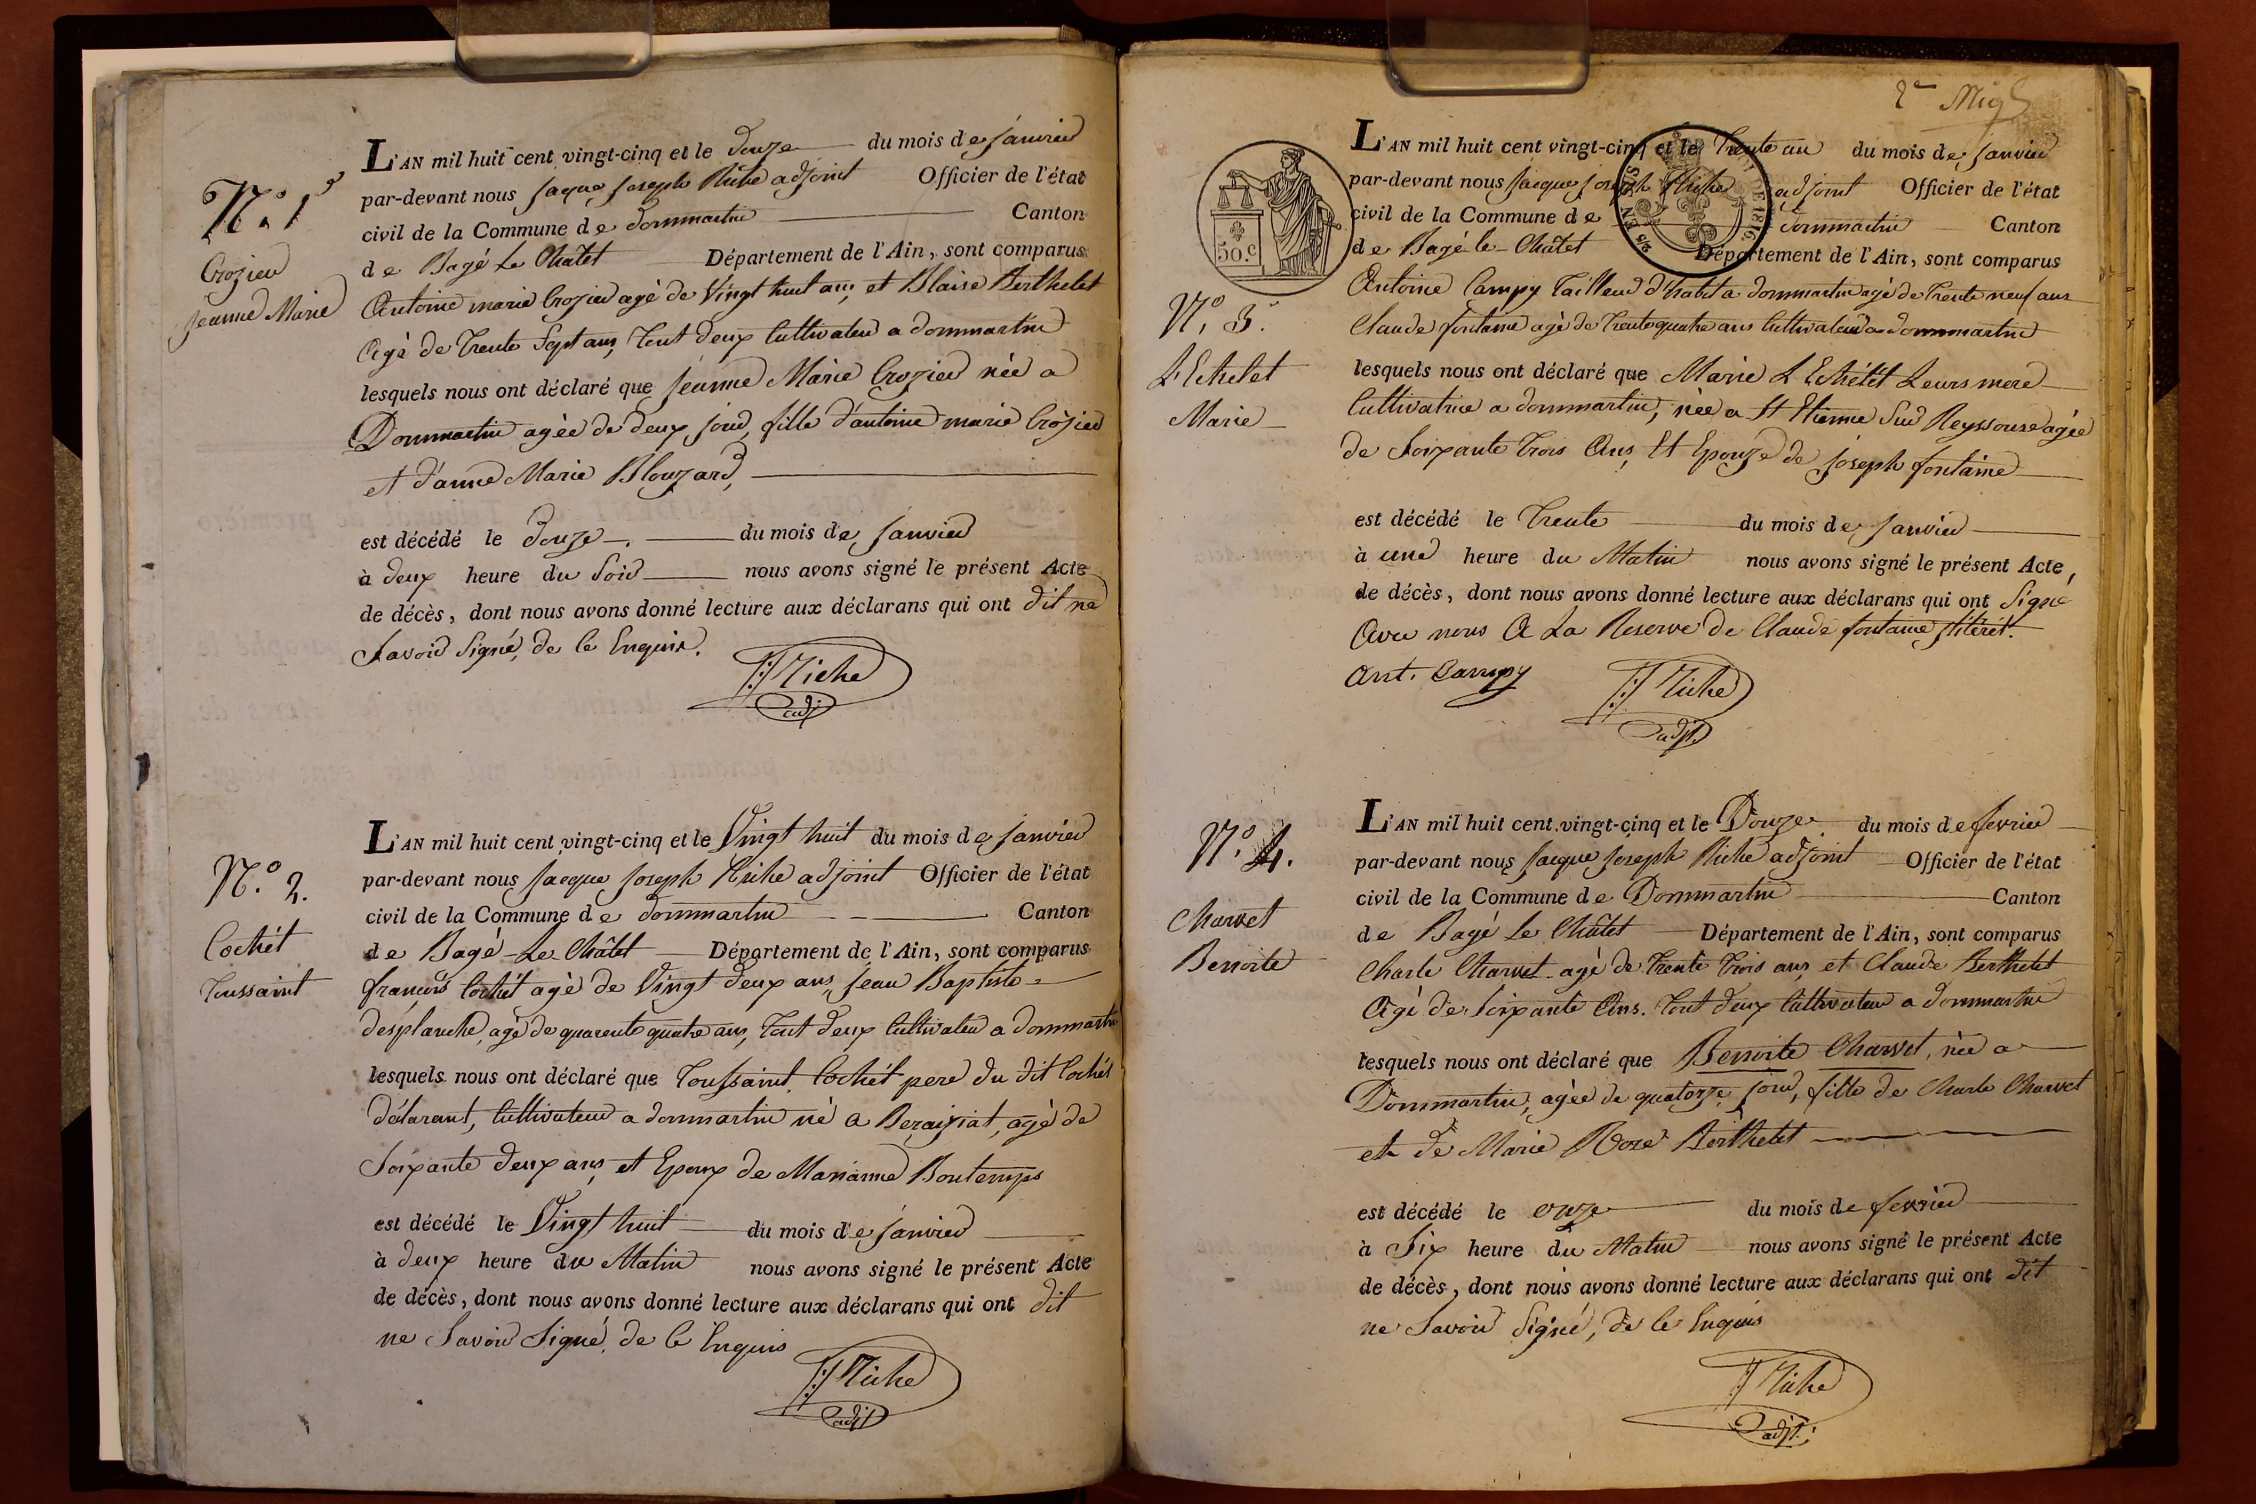 N.º 1.er
Crozier
Jeanne Marie
L'AN mil huit cent vingt-cinq et le douze du mois de janvier
par-devant nous Jacque Joseph Riche adjoint Officier de l'état
civil de la Commune de dommartin Canton
de Bagé Le Châtel Département de l'Ain, sont comparus
Antoine marie Crozier agé de Vingt huit ans, et Blaise Berthelet
Agé de Trente Sept ans, Tout deux Cultivateur a dommartin
lesquels nous ont déclaré que Jeanne Marie Crozier née a
Dommartin agée de deux jour, fille d'antoine marie Crozier
et d'anne Marie Blouzard,
est décédé le douze du mois de janvier
à deux heure du Soir nous avons signé le présent Acte
de décès, dont nous avons donné lecture aux déclarans qui ont dit ne
Savoir Signé, de ce Enquis.
JJ Riche
adj
N.º 2.
Cochet
Toussaint
L'AN mil huit cent vingt-cinq et le Vingt huit du mois de janvier
par-devant nous Jacque Joseph Riche adjoint Officier de l'état
civil de la Commune de dommartin Canton
de Bagé Le Châtel Département de l'Ain, sont comparus
françois Cochet agé de Vingt deux ans, Jean Baptiste
desplanche, agé de quarente quatre ans, Tout deux Cultivateur a dommartin
lesquels nous ont déclaré que Toussaint Cochet pere du dit Cochet
délarant, Cultivateur a dommartin né a Beraiziat, agé de
Soixante deux ans, et Epoux de Marianne Bontemps
est décédé le Vingt huit du mois de janvier
à deux heure du Matin nous avons signé le présent Acte
de décès, dont nous avons donné lecture aux déclarans qui ont dit
ne Savoir Signé, de ce Enquis
JJ Riche
adjt
2e
50.c
EN SUS
DE 1816.
N.º 3.
L'Echelet
Marie
L'AN mil huit cent vingt-cinq et le Trente un du mois de janvier
par-devant nous Jacque Joseph Riche adjoint Officier de l'état
civil de la Commune de dommartin Canton
de Bagé le Châtel Département de l'Ain, sont comparus
Antoine Campy Tailleur d'habit a dommartin agé de Trente neuf ans
Claude fontaine agé de Trente quatre ans Cultivateur a dommartin
lesquels nous ont déclaré que Marie L'Echelet Leurs mere
Cultivatrice a dommartin, née a St Etienne Sur Reyssouse agée
de Soixante Trois Ans, Et Epouze de Joseph fontaine
est décédé le Trente du mois de janvier
à une heure du Matin nous avons signé le présent Acte,
de décès, dont nous avons donné lecture aux déclarans qui ont Signé
Avec nous A La Reserve de Claude fontaine illitéré.
Ant. Campy
JJ Riche
adjt.
N.º 4.
Charvet
Benoite
L'AN mil huit cent vingt-cinq et le Douze du mois de fevrier
par-devant nous Jacque Joseph Riche adjoint Officier de l'état
civil de la Commune de Dommartin Canton
de Bagé Le Châtel Département de l'Ain, sont comparus
Charle Charvet agé de Trente Trois ans et Claude Berthelet
Agé de Soixante Ans. Tout deux Cultivateur a dommartin
lesquels nous ont déclaré que Benoite Charvet, née a
Dommartin, agée de quatorze jour, fille de Charle Charvet
et de Marie Roze Berthelet
est décédé le onze du mois de fevrier
à Six heure du Matin nous avons signé le présent Acte
de décès, dont nous avons donné lecture aux déclarans qui ont dit
ne Savoir Signé, de ce Enquis
JJ Riche
adjt.